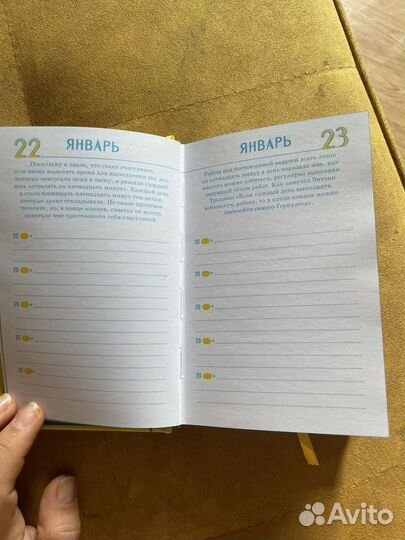 22 ЯНВАРЬ
Поскольку я знала, что стану счастливее,
если начну выделять время для выполнения тех дел,
которые повергали меня в тоску, я решила каждый
день «страдать по пятнадцать минут». Каждый день
я стала посвящать пятнадцать минут тем делам,
которые давно откладывала. Не самое приятное
решение, но, в конце концов, счастье не всегда
помогало мне чувствовать себя счастливой.
20
20
20
20
20
ЯНВАРЬ 23
Работа над поставленной задачей всего лишь
по пятнадцать минут в день показала мне, как
многого можно добиться, регулярно выполняя
разумный объем работ. Как замечал Энтони
Троллоп: «Если каждый день выполнять
небольшую работу, то в конце концов можно
превзойти самого Геркулеса».
20
20
20
20
20
Avito